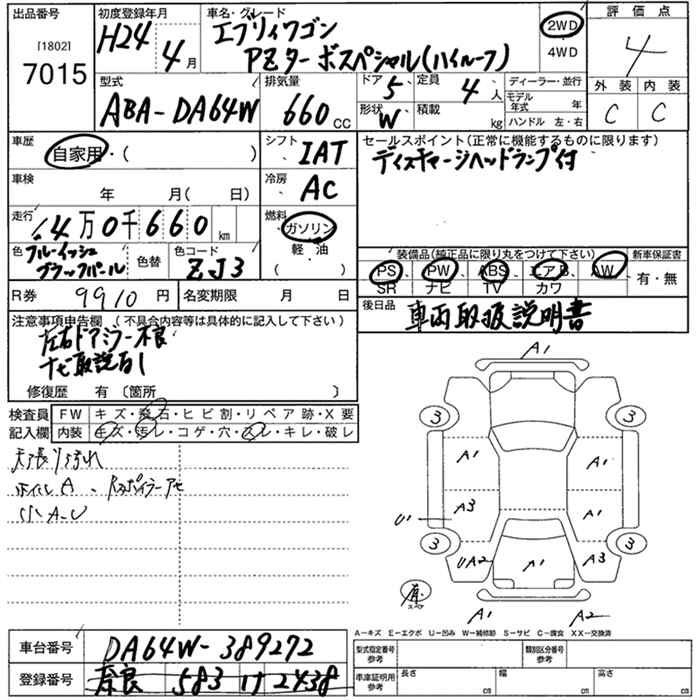 出品番号
[1802]
7015
初度登録年月
H24年4月
車名・グレード
エブリィワゴン
PZターボスペシャル(ハイルーフ)
2WD
4WD
評価点
4
外装 内装
C C
型式
ABA-DA64W
排気量
660cc
ドア 5
定員 4人
形状 W
積載 kg
ディーラー・並行
モデル年式 年
ハンドル 左・右
車歴
自家用・( )
シフト
IAT
セールスポイント(正常に機能するものに限ります)
ディスチャージヘッドランプ付
車検
年 月( 日)
冷房
AC
走行
4万0千660km
燃料
ガソリン
軽・油
( )
色
ブルーイッシュ
ブラックパール
色替
色コード
ZJ3
装備品(純正品に限り丸をつけて下さい)
PS PW ABS エアB AW
SR ナビ TV カワ
新車保証書
有・無
R券 9910円
名変期限 月 日
後日品
車両取扱説明書
注意事項申告欄 (不具合内容等は具体的に記入して下さい)
左右ドアミラー不良
ナビ取説有り
修復歴 有 〔箇所 〕
検査員
記入欄
FW キズ・飛石・ヒビ割・リペア跡・X要
内装 キズ・汚レ・コゲ・穴・スレ・キレ・破レ
天張り汚れ
小A・U
A1
3 3
A1 A1
A3 A1
U1
3 3
UA2 A1 A3
有
スペア
A1 A2
A-キズ E-エクボ U-凹み W-補修跡 S-サビ C-腐食 XX-交換済
車台番号 DA64W-389272
登録番号 奈良 583 け 2438
型式指定番号
参考
類別区分番号
参考
車庫証明用
参考
長さ cm
幅 cm
高さ cm